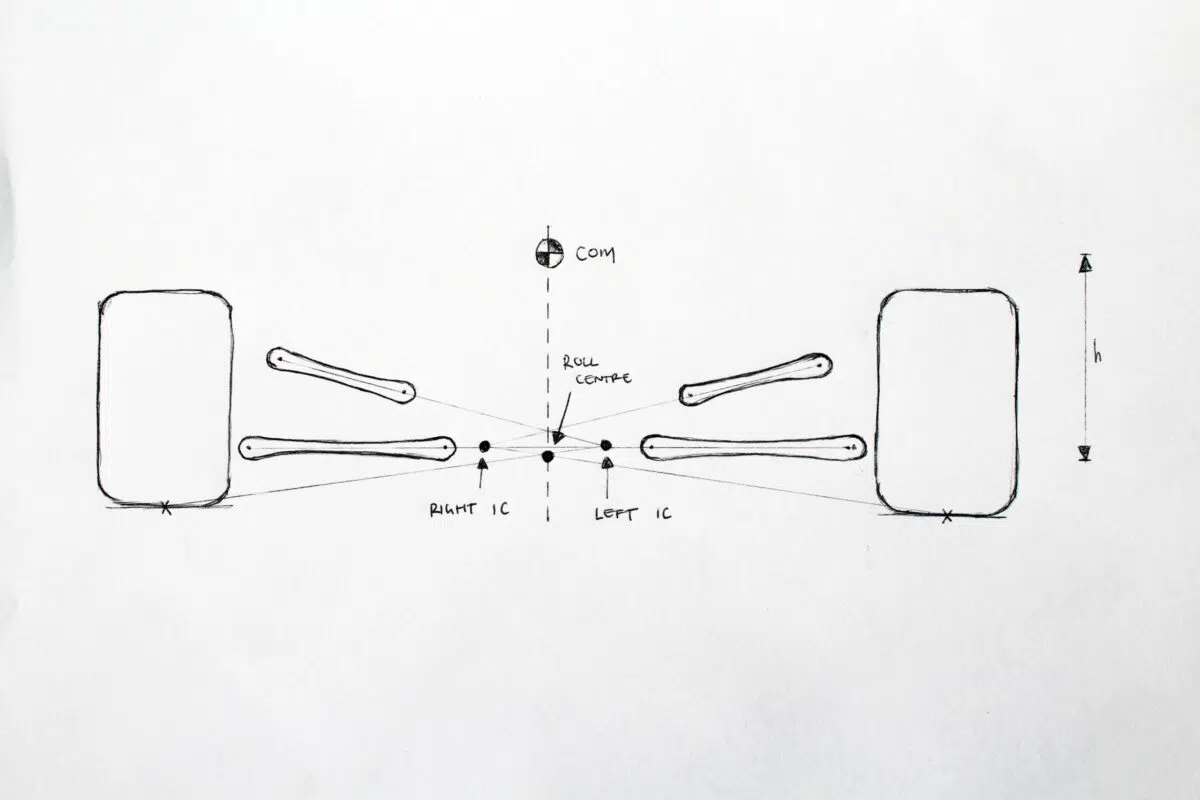 COM
ROLL
CENTRE
h
RIGHT IC
LEFT IC